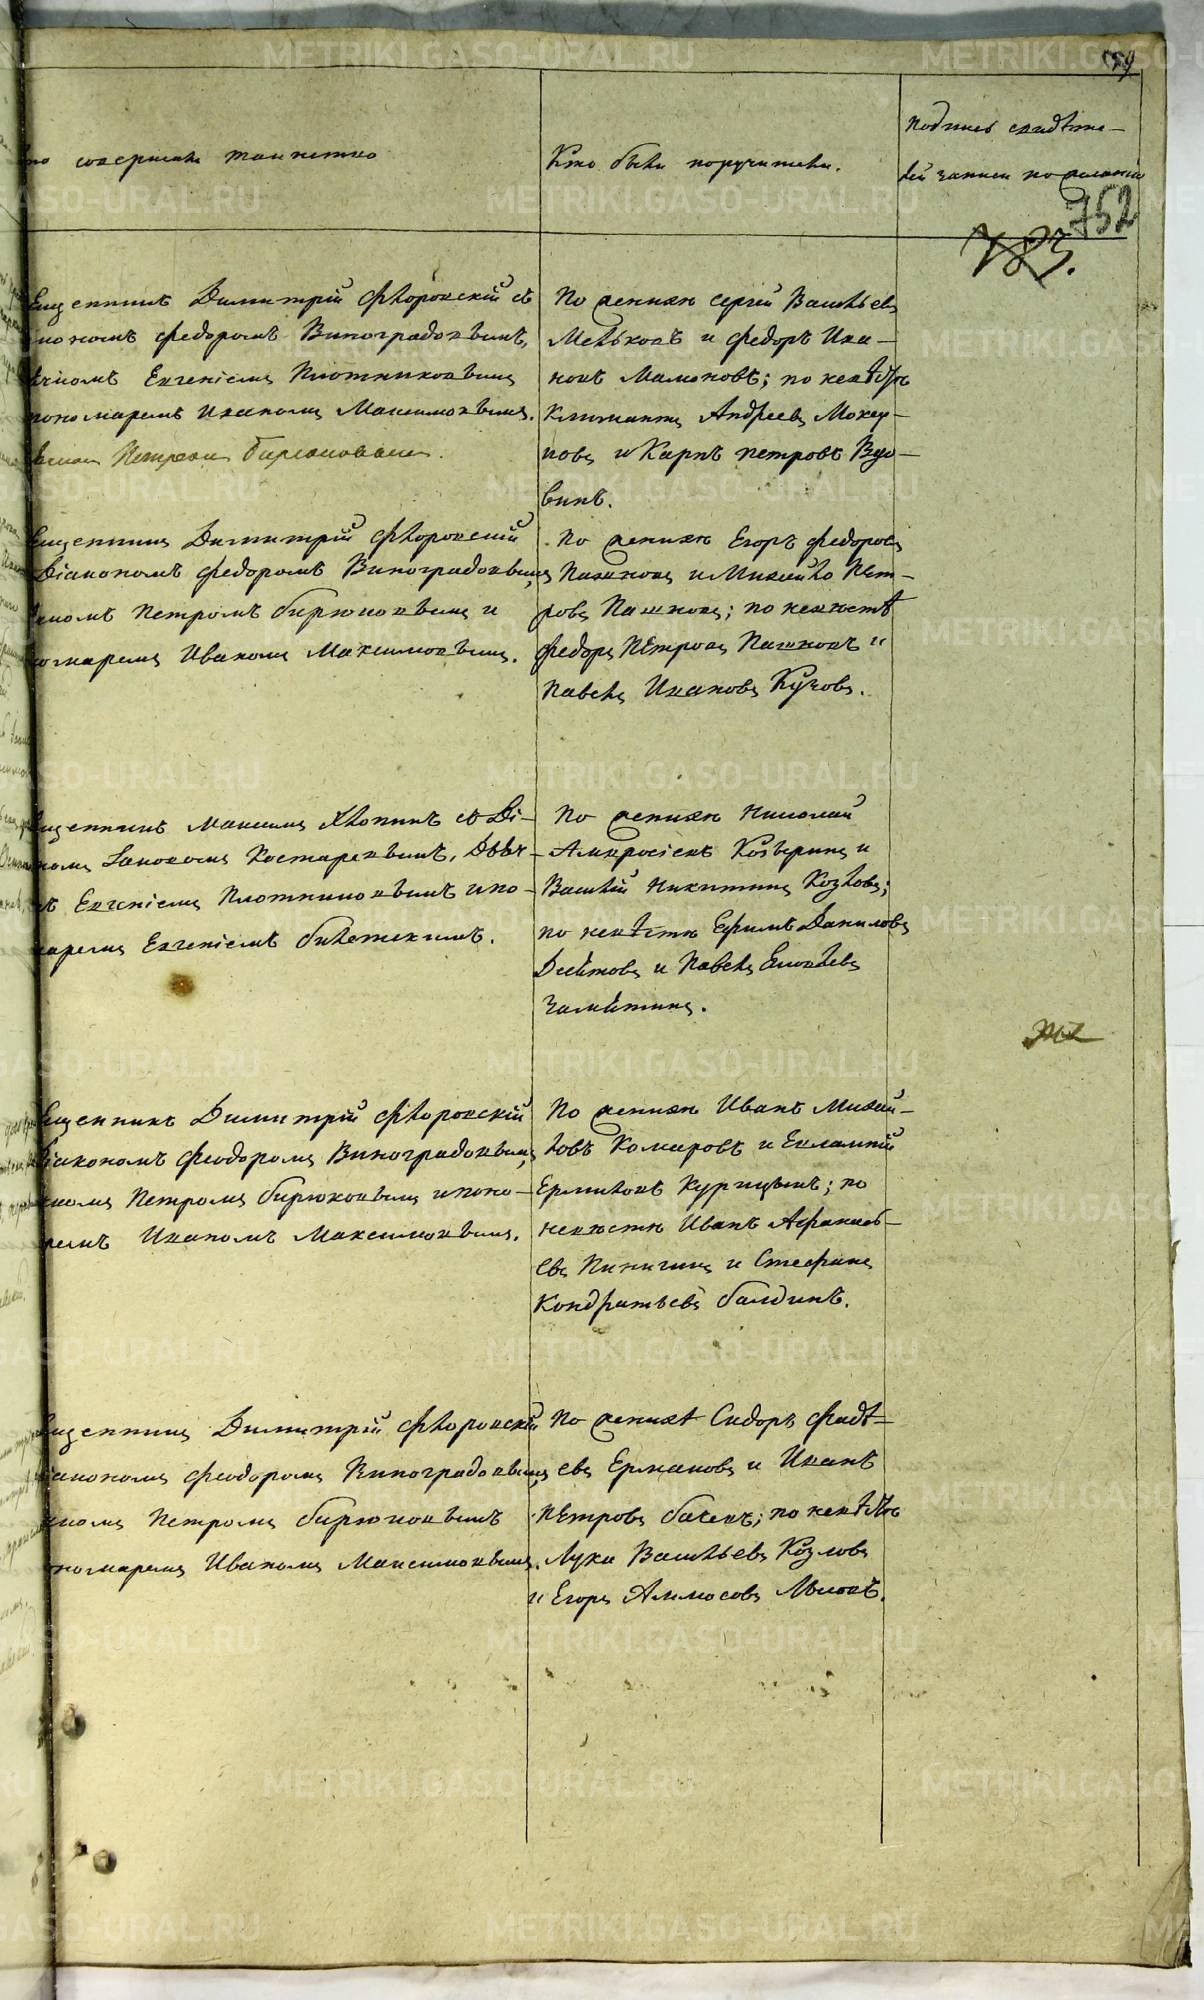 59
то совершалъ таинство
Кто были поручители.
подпись свидѣте-
лей записи по желанію
752
783.
вященникъ Димитрій Флоровскій съ
кономъ Федоромъ Виноградовымъ,
ячкомъ Евгеніемъ Плотниковымъ
пономаремъ Иваномъ Максимовымъ.
Петромъ Бирюковымъ.
По женихѣ Сергѣй Васильевъ
Мельковъ и Федоръ Ива-
новъ Мамоновъ; по невѣстѣ
Климантъ Андреевъ
и Карпъ Петровъ
вященникъ Димитрій Флоровскій
Діакономъ Федоромъ Виноградовымъ,
чкомъ Петромъ Бирюковымъ и
номаремъ Иваномъ Максимовымъ.
По женихѣ Егоръ Федоровъ
Пашковъ и Михайло Пет-
ровъ Пашковъ; по невѣстѣ
Федоръ Петровъ Пашковъ и
Павелъ Ивановъ
вященникъ Максимъ Хлопинъ съ Ді-
кономъ Іаковомъ Костаревымъ, Дьяч-
мъ Евгеніемъ Плотниковымъ и по-
маремъ Евгеніемъ
По женихѣ Николай
Амвросіевъ и
Василій Никитинъ Козловъ;
по невѣстѣ Ефимъ Даниловъ
и Павелъ
Замятинъ.
вященникъ Димитрій Флоровскій
Діакономъ Феодоромъ Виноградовымъ,
чкомъ Петромъ Бирюковымъ и поно-
ремъ Иваномъ Максимовымъ.
По женихѣ Иванъ Михай-
ловъ Комаровъ и Евлампій
Ермиловъ Курицынъ; по
невѣстѣ Иванъ Афанась-
евъ Пинигинъ и Стефанъ
Кондратьевъ Балдинъ.
вященникъ Димитрій Флоровскій
Діакономъ Феодоромъ Виноградовымъ,
чкомъ Петромъ Бирюковымъ
пономаремъ Иваномъ Максимовымъ.
По женихѣ Сидоръ Фадѣ-
евъ Ермаковъ и Иванъ
Петровъ; по невѣстѣ
Лука Васильевъ Козловъ
и Егоръ Аммосовъ